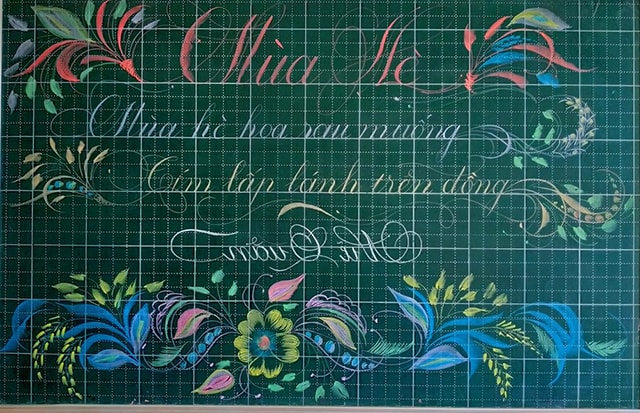 Mùa Hè
Mùa hè hoa rau muống
Tím lấp lánh trên đồng